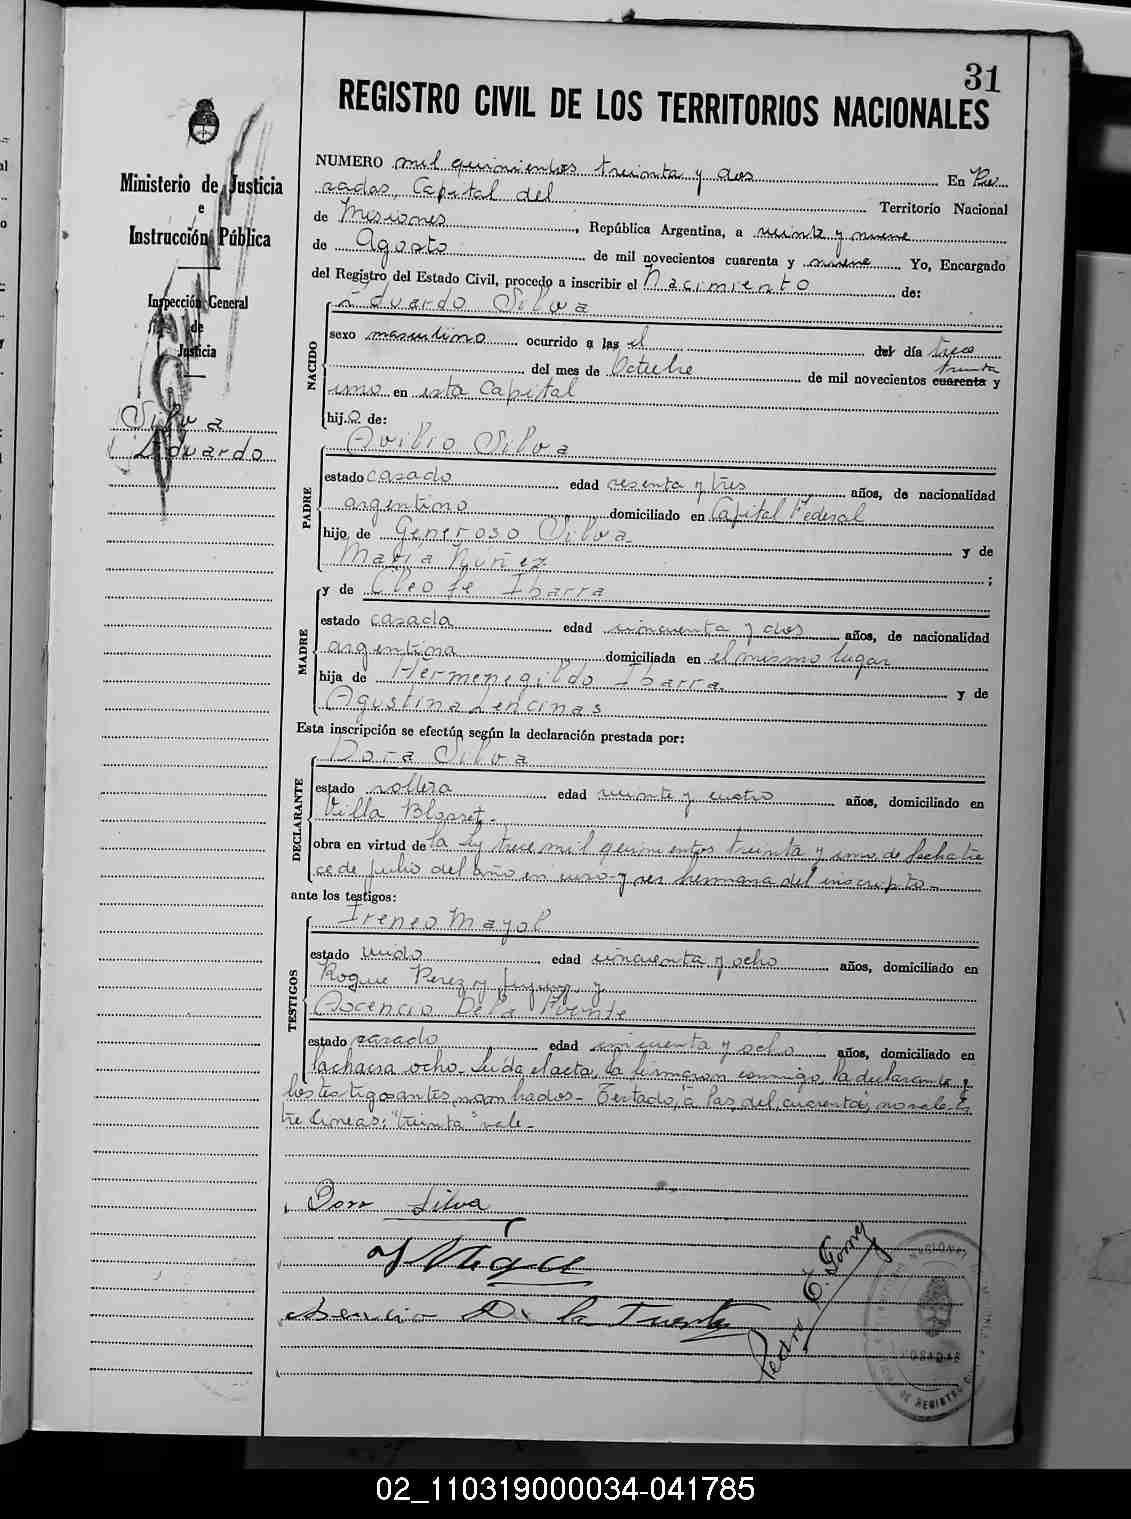 31
REGISTRO CIVIL DE LOS TERRITORIOS NACIONALES
Ministerio de Justicia
e
Instrucción Pública
Inspección General
de
Justicia
Silva
Eduardo
NUMERO mil quinientos treinta y dos En Po
sadas, Capital del Territorio Nacional
de Misiones, República Argentina, a veinte y nueve
de Agosto de mil novecientos cuarenta y nueve Yo, Encargado
del Registro del Estado Civil, procedo a inscribir el Nacimiento de:
NACIDO
Eduardo Silva
sexo masculino ocurrido a las el del día trece
del mes de Octubre de mil novecientos cuarenta treinta y
uno en esta Capital
hijo de:
PADRE
Avilio Silva
estado casado edad sesenta y tres años, de nacionalidad
argentino domiciliado en Capital Federal
hijo de Generoso Silva y de
María Núñez ;
MADRE
y de Cleofe Ibarra
estado casada edad cincuenta y dos años, de nacionalidad
argentina domiciliada en el mismo lugar
hija de Hermenegildo Ibarra y de
Agustina Lencinas
Esta inscripción se efectúa según la declaración prestada por:
DECLARANTE
Dora Silva
estado soltera edad veinte y cuatro años, domiciliado en
Villa Blosset.-
obra en virtud de la ley trece mil quinientos treinta y uno de fecha tre
ce de julio del año en curso y ser hermana del inscripto.-
ante los testigos:
TESTIGOS
Ireneo Mayol
estado viudo edad cincuenta y ocho años, domiciliado en
Roque Perez y Jujuy, y
Ascencio De la Fuente
estado casado edad cincuenta y ocho años, domiciliado en
la chacra ocho. Leída el acta, la firmaron conmigo, la declarante y
los testigos antes nombrados.- Testado, "a las, del, cuarenta", no vale.- En
tre lineas: "treinta" vale.-
Dora Silva
Asencio De la Fuente
Pedro C. Gomez
POSADAS
02_110319000034-041785